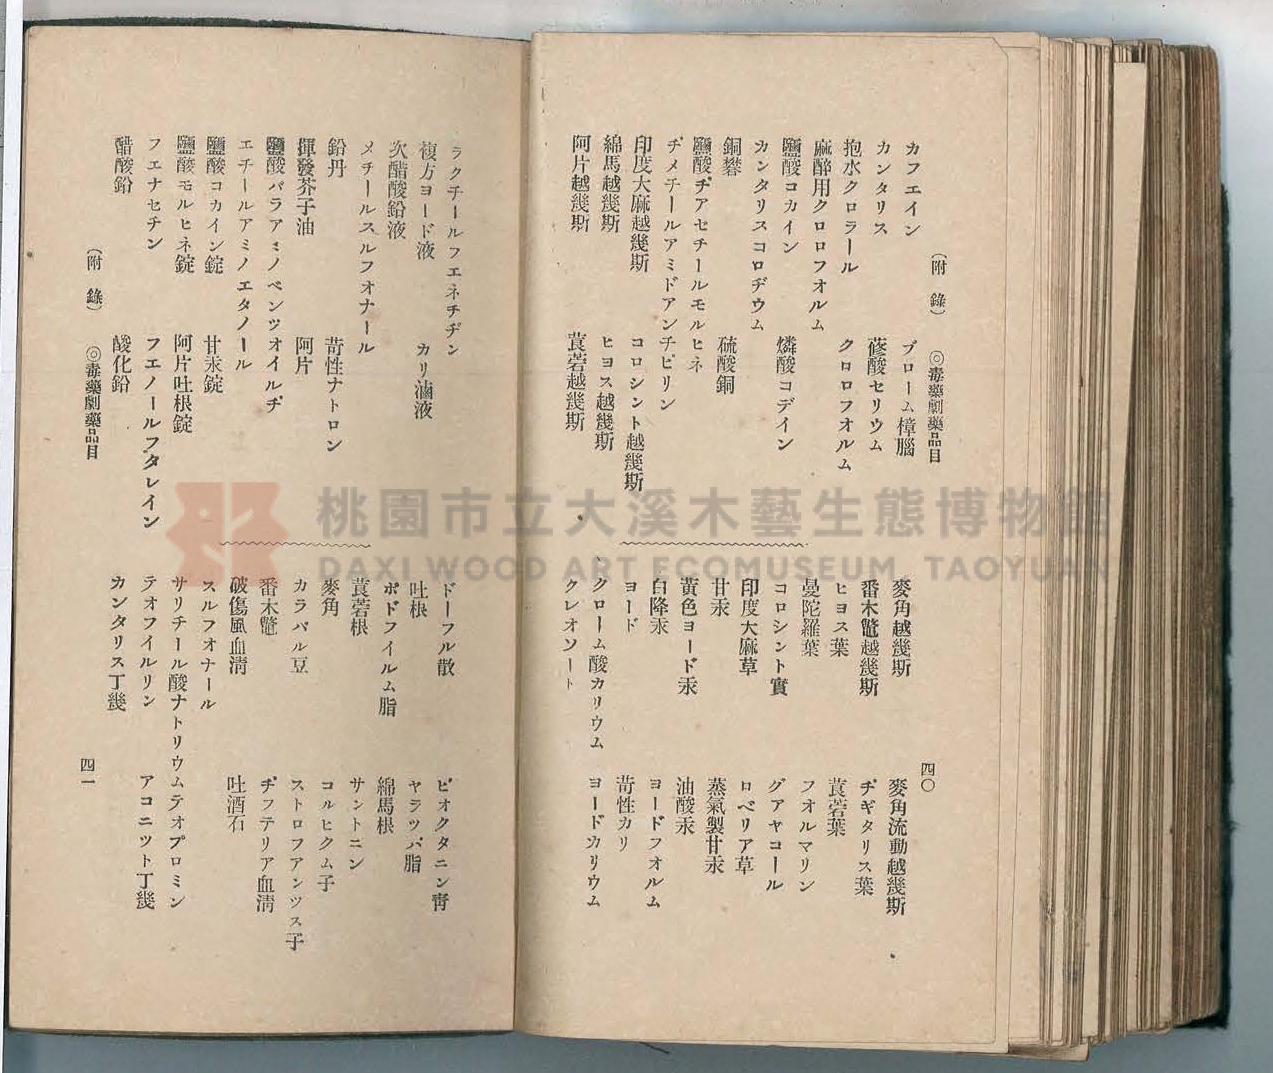 (附錄) ◎毒藥劇藥品目 四〇
カフエイン ブローム樟腦
カンタリス 蓚酸セリウム
抱水クロラール クロロフオルム
麻醉用クロロフオルム
鹽酸コカイン 燐酸コデイン
カンタリスコロヂウム
銅礬 硫酸銅
鹽酸ヂアセチールモルヒネ
ヂメチールアミドアンチピリン
印度大麻越幾斯 コロシント越幾斯
綿馬越幾斯 ヒヨス越幾斯
阿片越幾斯 莨菪越幾斯
麥角越幾斯 麥角流動越幾斯
番木鼈越幾斯 ヂギタリス葉
ヒヨス葉 莨菪葉
曼陀羅葉 フオルマリン
コロシント實 グアヤコール
印度大麻草 ロベリア草
甘汞 蒸氣製甘汞
黃色ヨード汞 油酸汞
白降汞 ヨードフオルム
ヨード 苛性カリ
クローム酸カリウム ヨードカリウム
クレオソート
ラクチールフエネチヂン
複方ヨード液 カリ滷液
次醋酸鉛液
メチールスルフオナール
鉛丹 苛性ナトロン
揮發芥子油 阿片
鹽酸パラアミノベンツオイルヂ
エチールアミノエタノール
鹽酸コカイン錠 甘汞錠
鹽酸モルヒネ錠 阿片吐根錠
フエナセチン フエノールフタレイン
醋酸鉛 酸化鉛
ドーフル散 ピオクタニン靑
吐根 ヤラツパ脂
ポドフイルム脂 綿馬根
莨菪根 サントニン
麥角 コルヒクム子
カラバル豆 ストロフアンツス子
番木鼈 ヂフテリア血淸
破傷風血淸 吐酒石
スルフオナール
サリチール酸ナトリウムテオブロミン
テオフイルリン アコニツト丁幾
カンタリス丁幾
(附錄) ◎毒藥劇藥品目 四一
桃園市立大溪木藝生態博物館
DAXI WOOD ART ECOMUSEUM, TAOYUAN